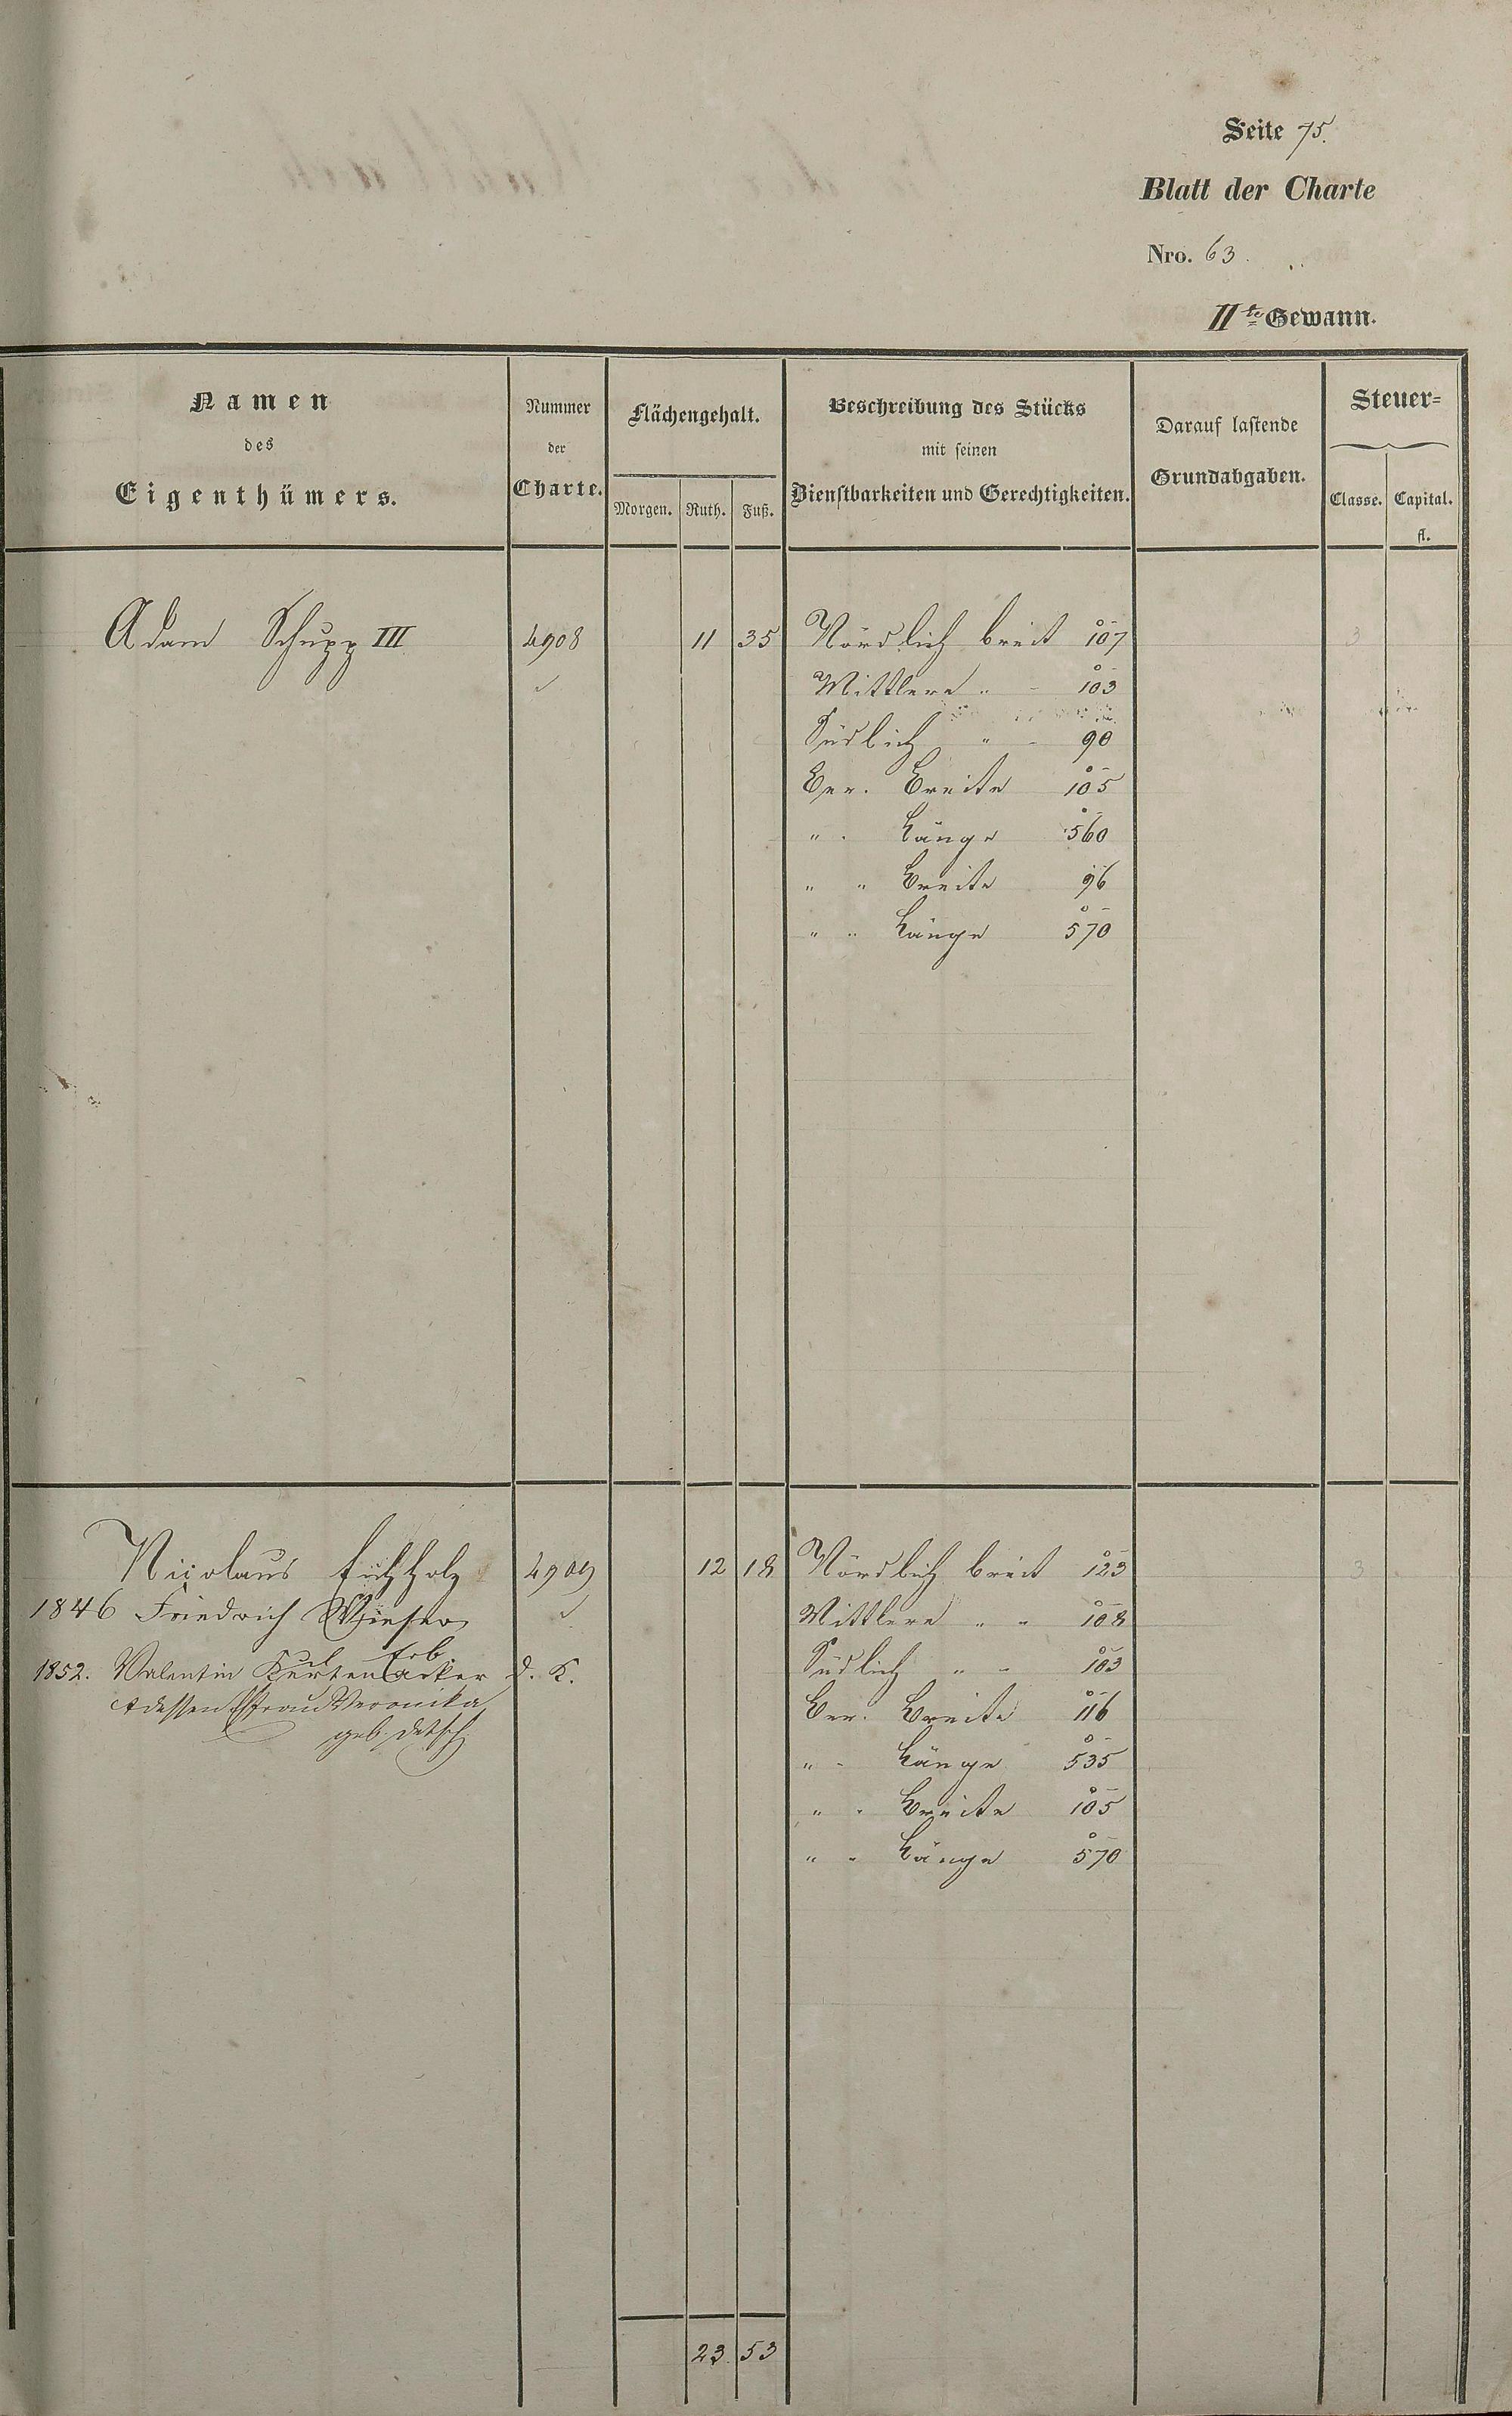 Seite 75.
Blatt der Charte
Nro. 63.
IIte Gewann.
Namen
des
Eigenthümers.
Nummer
der
Charte.
Flächengehalt.
Morgen. Ruth. Fuß.
Beschreibung des Stücks
mit seinen
Dienstbarkeiten und Gerechtigkeiten.
Darauf lastende
Grundabgaben.
Steuer=
Classe. Capital.
fl.
Adam Schupp III 4908 11 35 Nördlich breit 107 3
Mittlere " - 103
Südlich " - 90
Ber. Breite 105
" . Länge 560
" " Breite 96
" " Länge 570
Nicolaus Eichholz 4909 12 18 Nördlich breit 123 3
1846 Friedrich Wieser Mittlere " " 108
1852. Valentin d. K. Südlich " - 103
Frau Veronika Ber. Breite 116
geb.
" - Länge 535
" . Breite 105
" " Länge 570
23 53